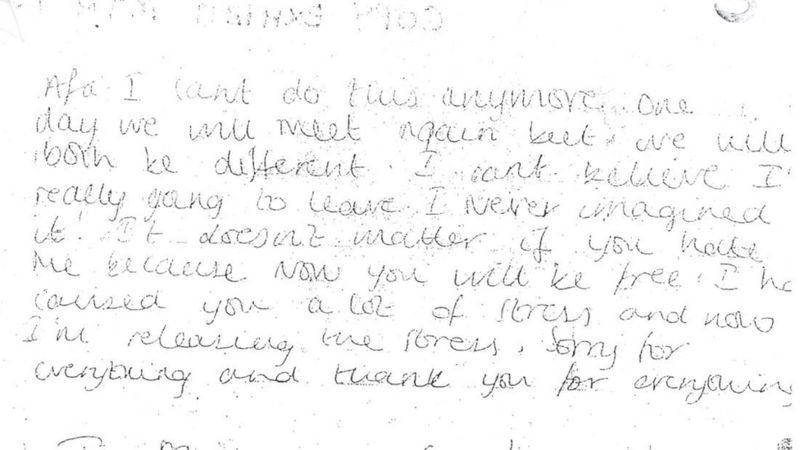 COPY EXHIBIT
Afa I cant do this anymore. One
day we will meet again but we will
both be different. I cant believe I'
really going to leave I never imagined
it! It doesn't matter if you hate
me because now you will be free. I ha
caused you a lot of stress and now
I'm releasing the stress. Sorry for
everything and thank you for everything